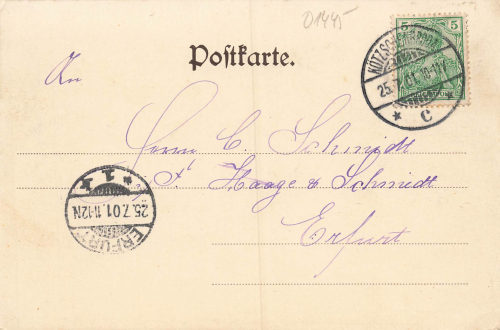 01445
Postkarte.
5 5
KÖTZSCHENBRODA
25.7.01.10-11V.
* C *
An
Herrn C. Schmidt
F. Haage & Schmidt
Erfurt
* 1 *
25.7.01.11-12N
ERFURT